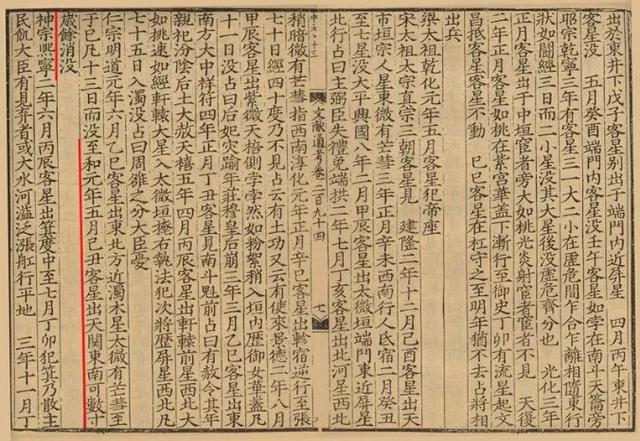 出於東井下戊子客星別出于端門內近屏星 四月丙午東井下
客星没 五月癸酉端門內客星没壬午客星如孛在南斗天籥旁
昭宗乾寧三年有客星三一大二小在虛危間乍合乍離相隨東行
狀如鬬經三日而二小星没其大星後没虛危齊分也 光化三年
正月客星出于中垣宦者旁大如桃光炎射宦者宦者不見 天復
二年正月客星如桃在紫宮華蓋下漸行至御史丁卯有流星起文
昌抵客星客星不動 己巳客星在杠守之至明年猶不去占將相
出兵
梁太祖乾化元年五月客星犯帝座
宋太祖太宗真宗三朝客星見 建隆二年十二月己酉客星出天
市垣宗人星東微有芒彗三年正月辛未西南行入氐宿二月癸丑
至七星没太平興國八年二月甲辰客星出太微垣端門東近屏星
北行占曰主弼臣失禮免端拱二年七月丁亥客星出北河星西北
文獻通考卷二百九十四
七
稍暗微有芒彗指西南淳化元年正月辛巳客星出軫宿逆行至張
七十日經四十度乃不見占云有土功又云有使來景德二年八月
甲辰客星出紫微天棓側孛孛然如粉絮稍入垣內歷御女華蓋凡
十一日没占曰后妃灾踰年莊穆皇后崩三年三月乙巳客星出東
南方大中祥符四年正月丁丑客星見南斗魁前占曰有赦令其年
親祀汾陰后土大赦天禧五年四月丙辰客星出軒轅前星西北大
如桃速如經軒轅大星入太微垣掩右執法犯次將歷屏星西北凡
七十五日入濁没占曰周雒之分大臣憂
仁宗明道元年六月乙巳客星出東北方近濁木星太微有芒彗至
丁巳凡十三日而没至和元年五月己丑客星出天關東南可數寸
歲餘消没
神宗熙寧二年六月丙辰客星出箕度中至七月丁卯犯箕乃散主
民飢大臣有見弃者或大水河溢泛漲舡行平地 三年十一月丁